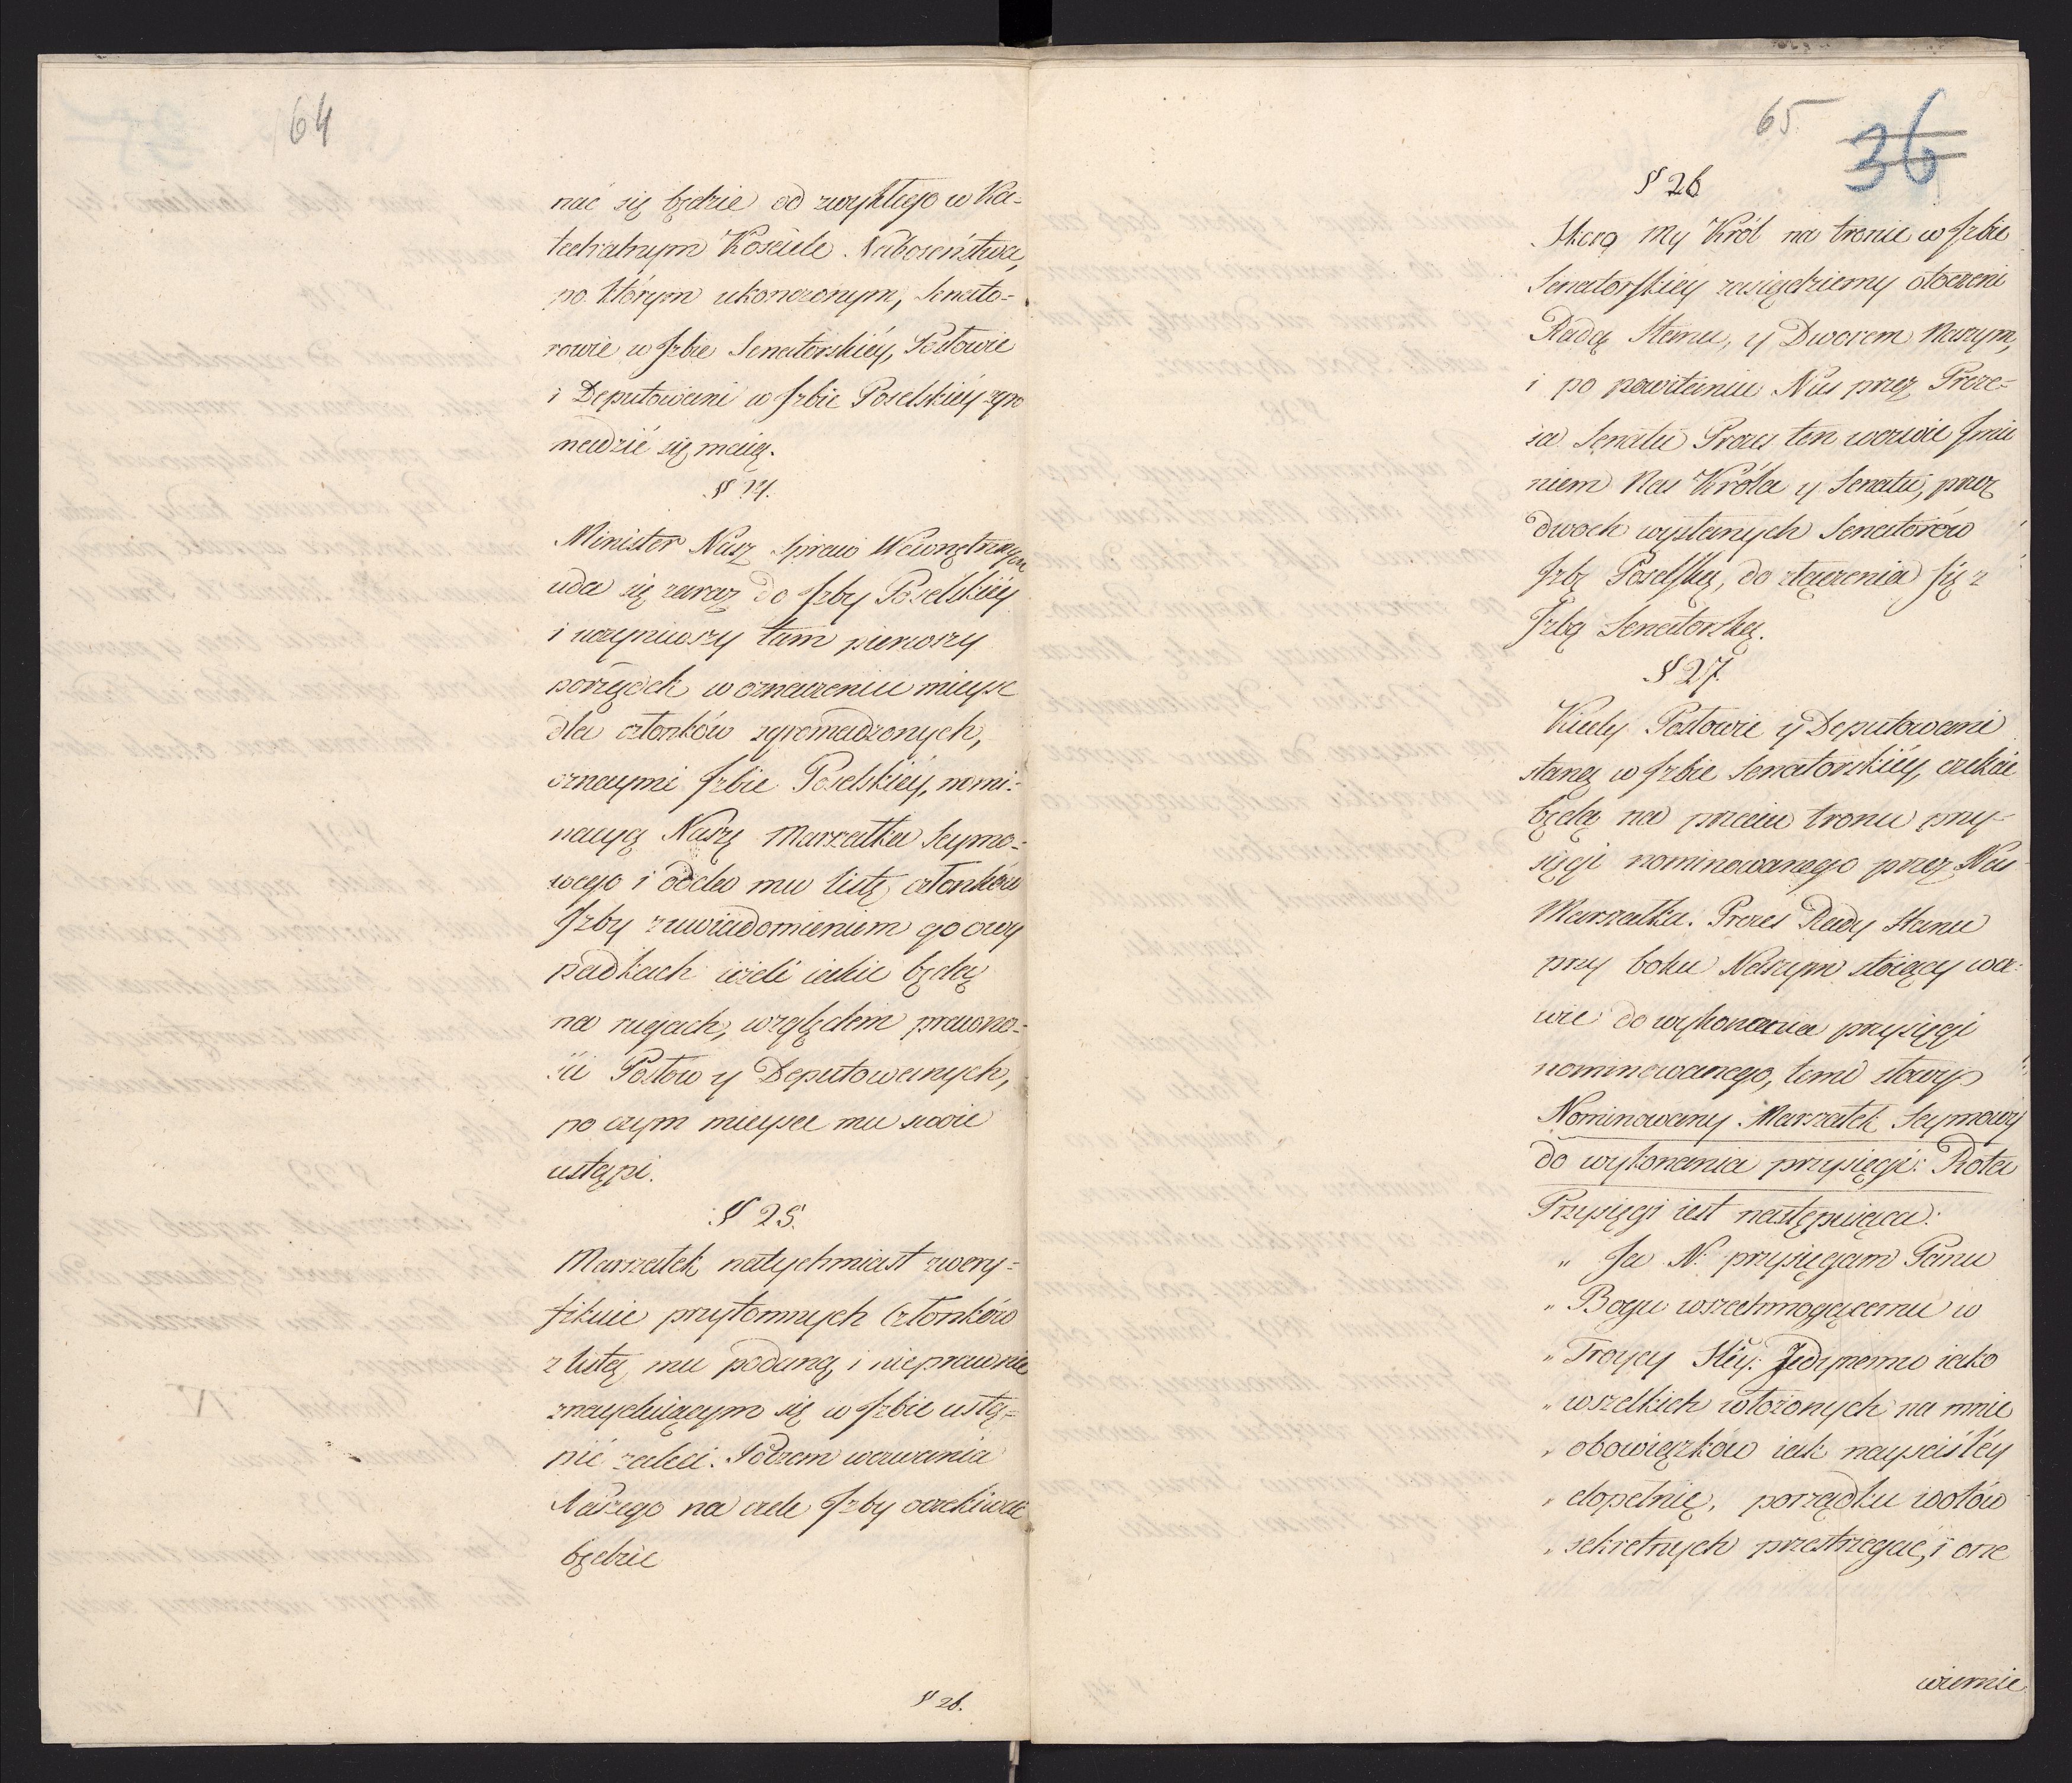 64
nać się będzie od zwykłego w Ka-
tedralnym Kościele Nabożeństwa,
po którym ukończonym, Senato-
rowie w Izbie Senatorskiéy, Posłowie
i Deputowani w Izbie Poselskiéy zgro
madzić się maią.
§ 24.
Minister Nasz Spraw Wewnętrznych
uda się zaraz do Izby Poselskiéy
i uczyniwszy tam pierwszy
porządek w oznaczeniu mieysc
dla członków zgromadzonych,
oznaymi Izbie Poselskiéy, nomi-
nacyą Naszą Marszałka Seymo-
wego i odda mu listę członków
Izby z uwiadomieniem go o wy
padkach ieżeli iakie będą
na rugach, względem prawno-
ści Posłow y Deputowanych,
po czym mieysce mu swoie
ustąpi.
§ 25.
Marszałek natychmiast zwery-
fikuie przytomnych Członków
z listą mu podaną, i nieprawnie
znayduiącym się w Izbie ustą-
pić zaleci. Poczem wezwania
Naszego na czele Izby oczekiwać
będzie
§ 26.
65
36
§ 26
Skoro My Król na tronie w Izbie
Senatorskiéy zasiądziemy otoczeni
Radą Stanu, y Dworem Naszym,
i po powitaniu Nas przez Preze-
sa Senatu Prezes ten wezwie Jmie
niem Nas Króla y Senatu, przez
dwoch wysłanych Senatorów
Izbę Poselską, do złączenia się z
Izbą Senatorską.
§ 27.
Kiedy Posłowie y Deputowani
staną w Izbie Senatorskiéy, czekać
będą na przeciw tronu przy-
sięgi nominowanego przez Nas
Marszałka. Prezes Rady Stanu
przy boku Naszym stoiący wez-
wie do wykonania przysięgi
nominowanego, temi słowy
Nominowany Marszałek Seymowy
do wykonania przysięgi: Rota
Przysięgi iest następuiąca:
„ Ja N. przysięgam Panu
„ Bogu wszechmogącemu w
„ Troycy Stéy: Jedynemu iako
„ wszelkich włożonych na mnie
„ obowiązków iak nayściśléy
„ dopełnię, porządku wotów
„ sekretnych przestrzegać, i one
wiernie